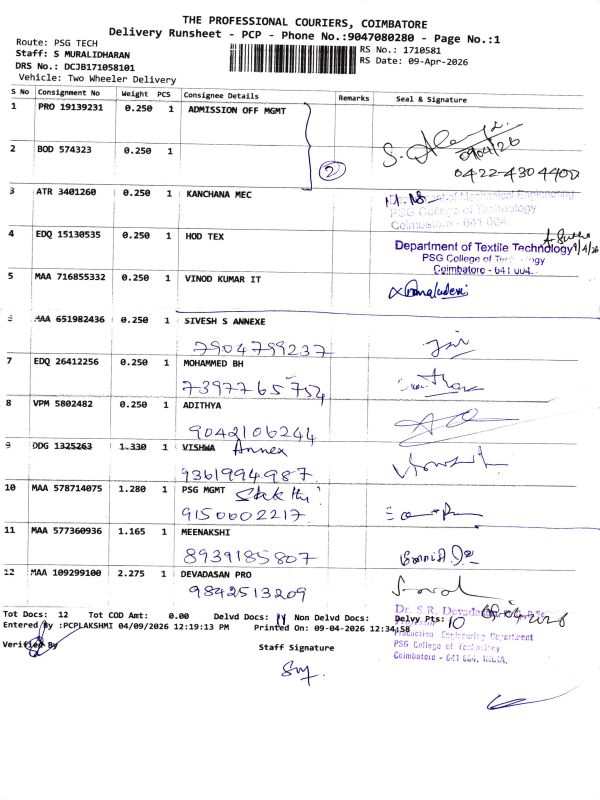 THE PROFESSIONAL COURIERS, COIMBATORE
Delivery Runsheet - PCP - Phone No.:9047080280 - Page No.:1
Route: PSG TECH
Staff: S MURALIDHARAN
DRS No.: DCJB171058101
Vehicle: Two Wheeler Delivery
RS No.: 1710581
RS Date: 09-Apr-2026
S No Consignment No Weight PCS Consignee Details Remarks Seal & Signature
1 PRO 19139231 0.250 1 ADMISSION OFF MGMT
09/04/26
2 BOD 574323 0.250 1
2
0422-4304400
3 ATR 3401260 0.250 1 KANCHANA MEC
of Mechanical Engineering
PSG College of Technology
Coimbatore - 641 004.
4 EDQ 15130535 0.250 1 HOD TEX
Department of Textile Technology
PSG College of Technology
Coimbatore - 641 004.
5 MAA 716855332 0.250 1 VINOD KUMAR IT
6 MAA 651982436 0.250 1 SIVESH S ANNEXE
7904799237
7 EDQ 26412256 0.250 1 MOHAMMED BH
7397765754
8 VPM 5802482 0.250 1 ADITHYA
9042106244
9 DDG 1325263 1.330 1 VISHWA Annex
9361994987
10 MAA 578714075 1.280 1 PSG MGMT
9150602217
11 MAA 577360936 1.165 1 MEENAKSHI
8939185807
12 MAA 109299100 2.275 1 DEVADASAN PRO
9842513209
Tot Docs: 12 Tot COD Amt: 0.00 Delvd Docs: 11 Non Delvd Docs: Delvy Pts: 10
Entered By :PCPLAKSHMI 04/09/2026 12:19:13 PM Printed On: 09-04-2026 12:34:58
Verified By
Staff Signature
Dr. S.R. Devadasan
Professor
Production Engineering Department
PSG College of Technology
Coimbatore - 641 004, INDIA.